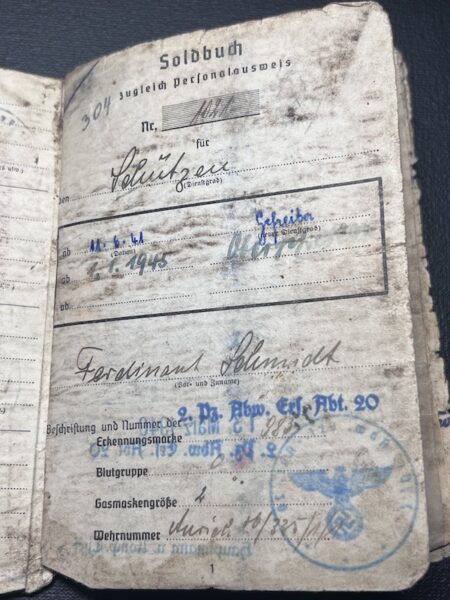 304
Soldbuch
zugleich Personalausweis
Nr. 1021
für
den Schützen
(Dienstgrad)
ab 11.6.41 Gefreiter
(Datum) (neuer Dienstgrad)
ab 1.1.1945
ab
Ferdinant Schmidt
(Vor- und Zuname)
Beschriftung und Nummer der 2. Pz. Abw. Ers. Abt. 20
Erkennungsmarke
Blutgruppe
Gasmaskengröße 2
Wehrnummer
1